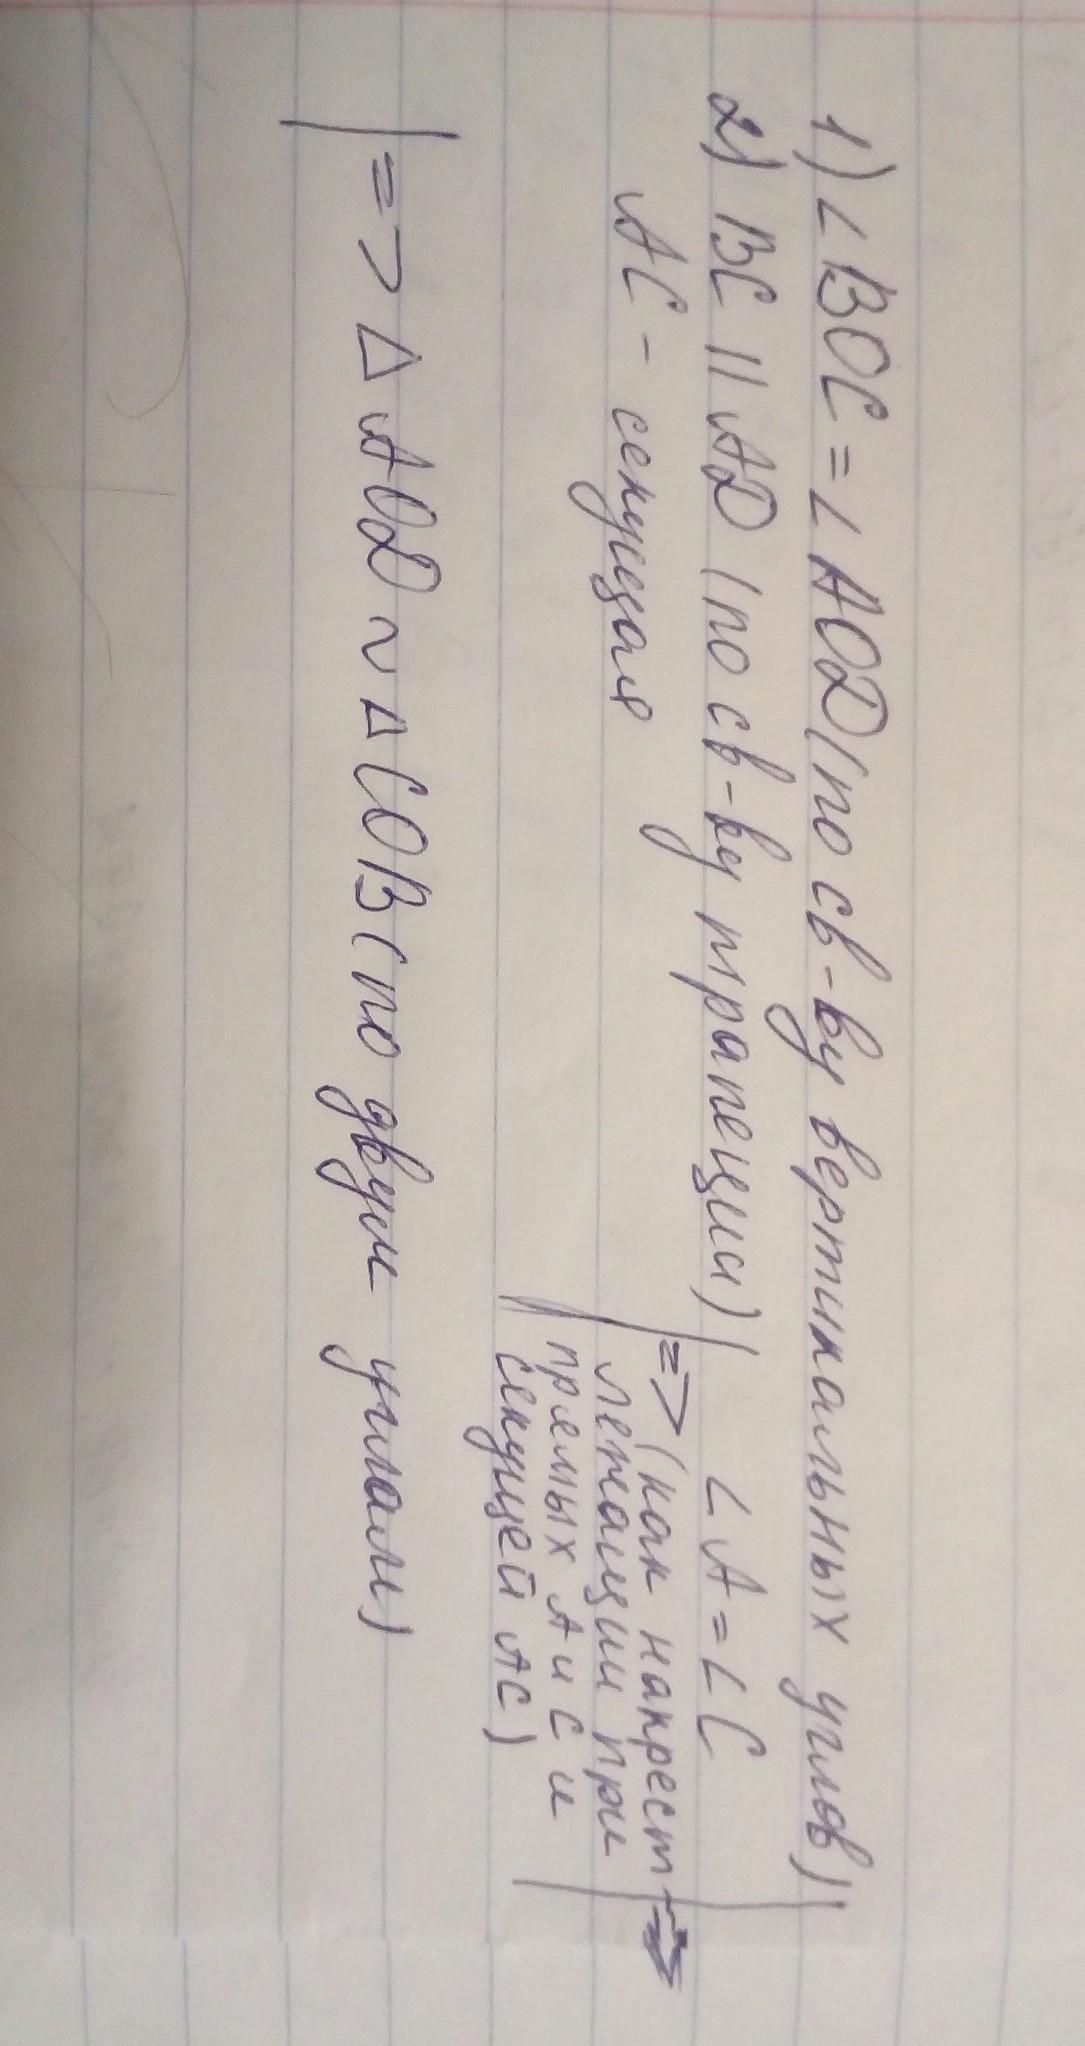 1) ∠BOC = ∠AOD (по св-ву вертикальных углов)
2) BC || AD (по св-ву трапеции) ∠A = ∠C
AC - секущая
=> (как накрест
лежащии при
прямых A и C и
секущей AC)
=>
=> Δ AOD ~ Δ COB (по двум углам)